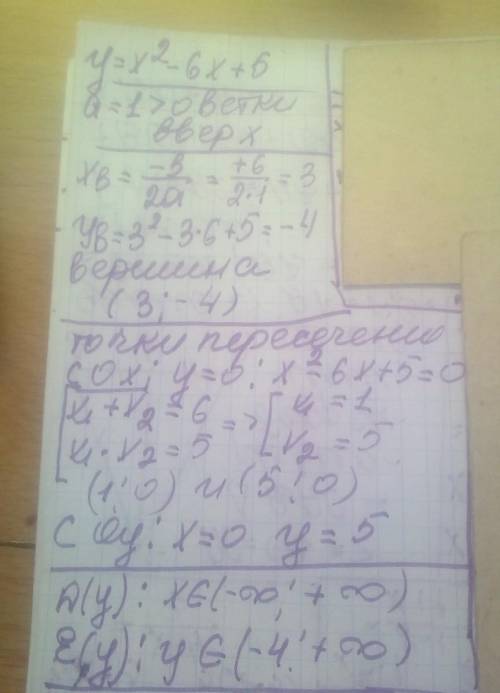 y=x²-6x+5
a=1>0 ветки
вверх
xв = -в/2a = +6/2·1 = 3
yв=3²-3·6+5=-4
вершина
(3;-4)
точки пересечения
с Ox: y=0: x²-6x+5=0
[x₁+x₂=6 => [x₁=1
x₁·x₂=5 x₂=5
(1;0) и (5;0)
С Oy: x=0 y=5
D(y): x∈(-∞;+∞)
E(y): y∈(-4;+∞)